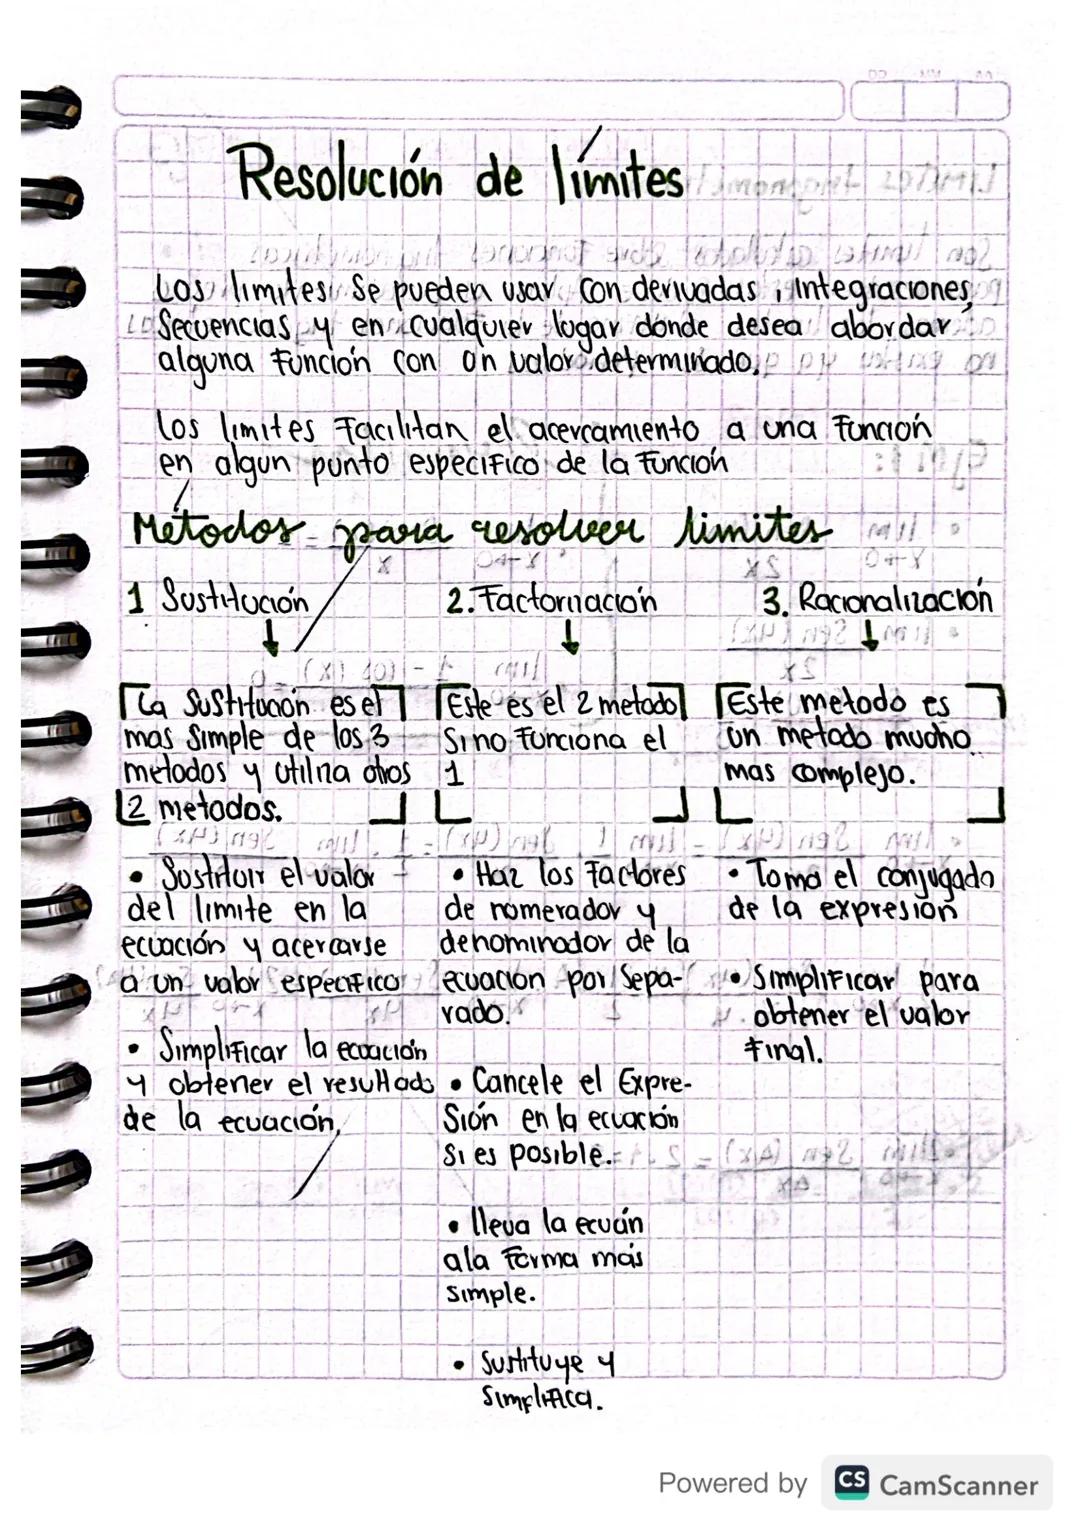 Resolución de límites
Los limites se pueden usar con derivadas, integraciones,
Secuencias y en cualquier lugar donde desea abordar
alguna Función con un valor determinado.
Los limites Facilitan el acercamiento a una Función
en algun punto especifico de la Función
Métodos para resolver limites
1 Sustitución
2. Factorización
3. Racionalización
La Sustitución es el
mas Simple de los 3
metodos y utiliza otros
2 metodos.
• Sustituir el valor
del limite en la
ecuación y acercarse
a un valor especifico
• Simplificar la ecuación
y obtener el resultado
de la ecuación,
Este es el 2 metodo
Si no Funciona el
1
• Haz los Factores
de numerador y
denominador de la
ecuacion por Sepa-
rado.
• Cancele el Expre-
Sión en la ecuación
Si es posible.
• lleva la ecución
a la Forma más
simple.
• Sustituye y
Simplifica.
Este metodo es
un metodo mucho
mas complejo.
• Toma el conjugado
de la expresión
• Simplificar para
obtener el valor
Final.
Powered by CS CamScanner